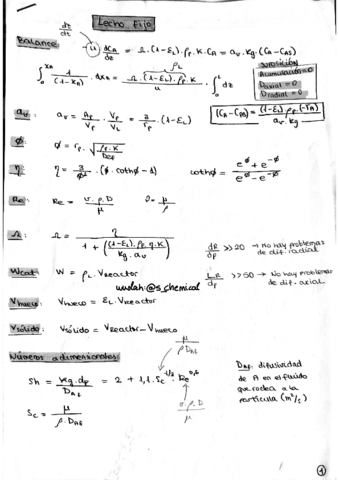 Lecho Fijo
dz/dt
Balance
-u dCA/dz = Ω·(1-εL)·ρp·K·CA = av·kg·(CA-CAS)
∫₀^XA 1/(1-XA)·dXA = Ω·(1-εL)·ρp·K/u · ∫₀^L dz
ρL
Acumulación=0
Daxial = 0
Dradial = 0
(CA-CAS) = (1-εL) ρp (-rA)/av·kg
av: av = Ap/Vp · Vp/VL = 3/rp · (1-εL)
Φ: Φ = rp · √(ρp·K/Deff)
η: η = 3/Φ² · (Φ·cothΦ-1) cothΦ = (e^Φ + e^-Φ)/(e^Φ - e^-Φ)
Re: Re = v·ρ·D/μ ν = μ/ρ
Ω: Ω = η/(1 + ((1-εL)·ρp·η·K/kg·av))
dR/dp >> 20 → No hay problemas de dif. radial
Wcat: W = ρL·Vreactor
LR/dp >> 50 → No hay problemas de dif. axial
wuolah:@s_chemical
Vhueco: Vhueco = εL·Vreactor
Vsólido: Vsólido = Vreactor - Vhueco
Números adimensionales:
μ/ρ·DAB
Sh = kg·dp/DAB = 2 + 1,1·Sc^1/3·Re^0,6
v·ρ·D/μ
Sc = μ/ρ·DAB
DAB: difusividad
de A en el fluido
que rodea a la
partícula (m²/s)
1